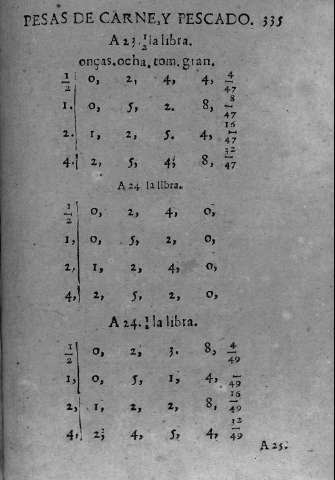 PESAS DE CARNE, Y PESCADO. 335
A 23. 1/2 la libra.
onças. ocha. tom. gran.
1/2 0, 2, 4, 4, 4/47
1. 0, 5, 2. 8, 8/47
2. 1, 2, 5. 4, 16/47
4. 2, 5, 4, 8, 32/47
A 24 la libra.
1/2 0, 2, 4, 0,
1, 0, 5, 2, 0,
2, 1, 2, 4, 0,
4, 2, 5, 2, 0,
A 24. 1/2 la libra.
1/2 0, 2, 3. 8, 4/49
1, 0, 5, 1, 4, /49
2, 1, 2, 2, 8, 16/49
4, 2, 4, 5, 4, /49
A 25.